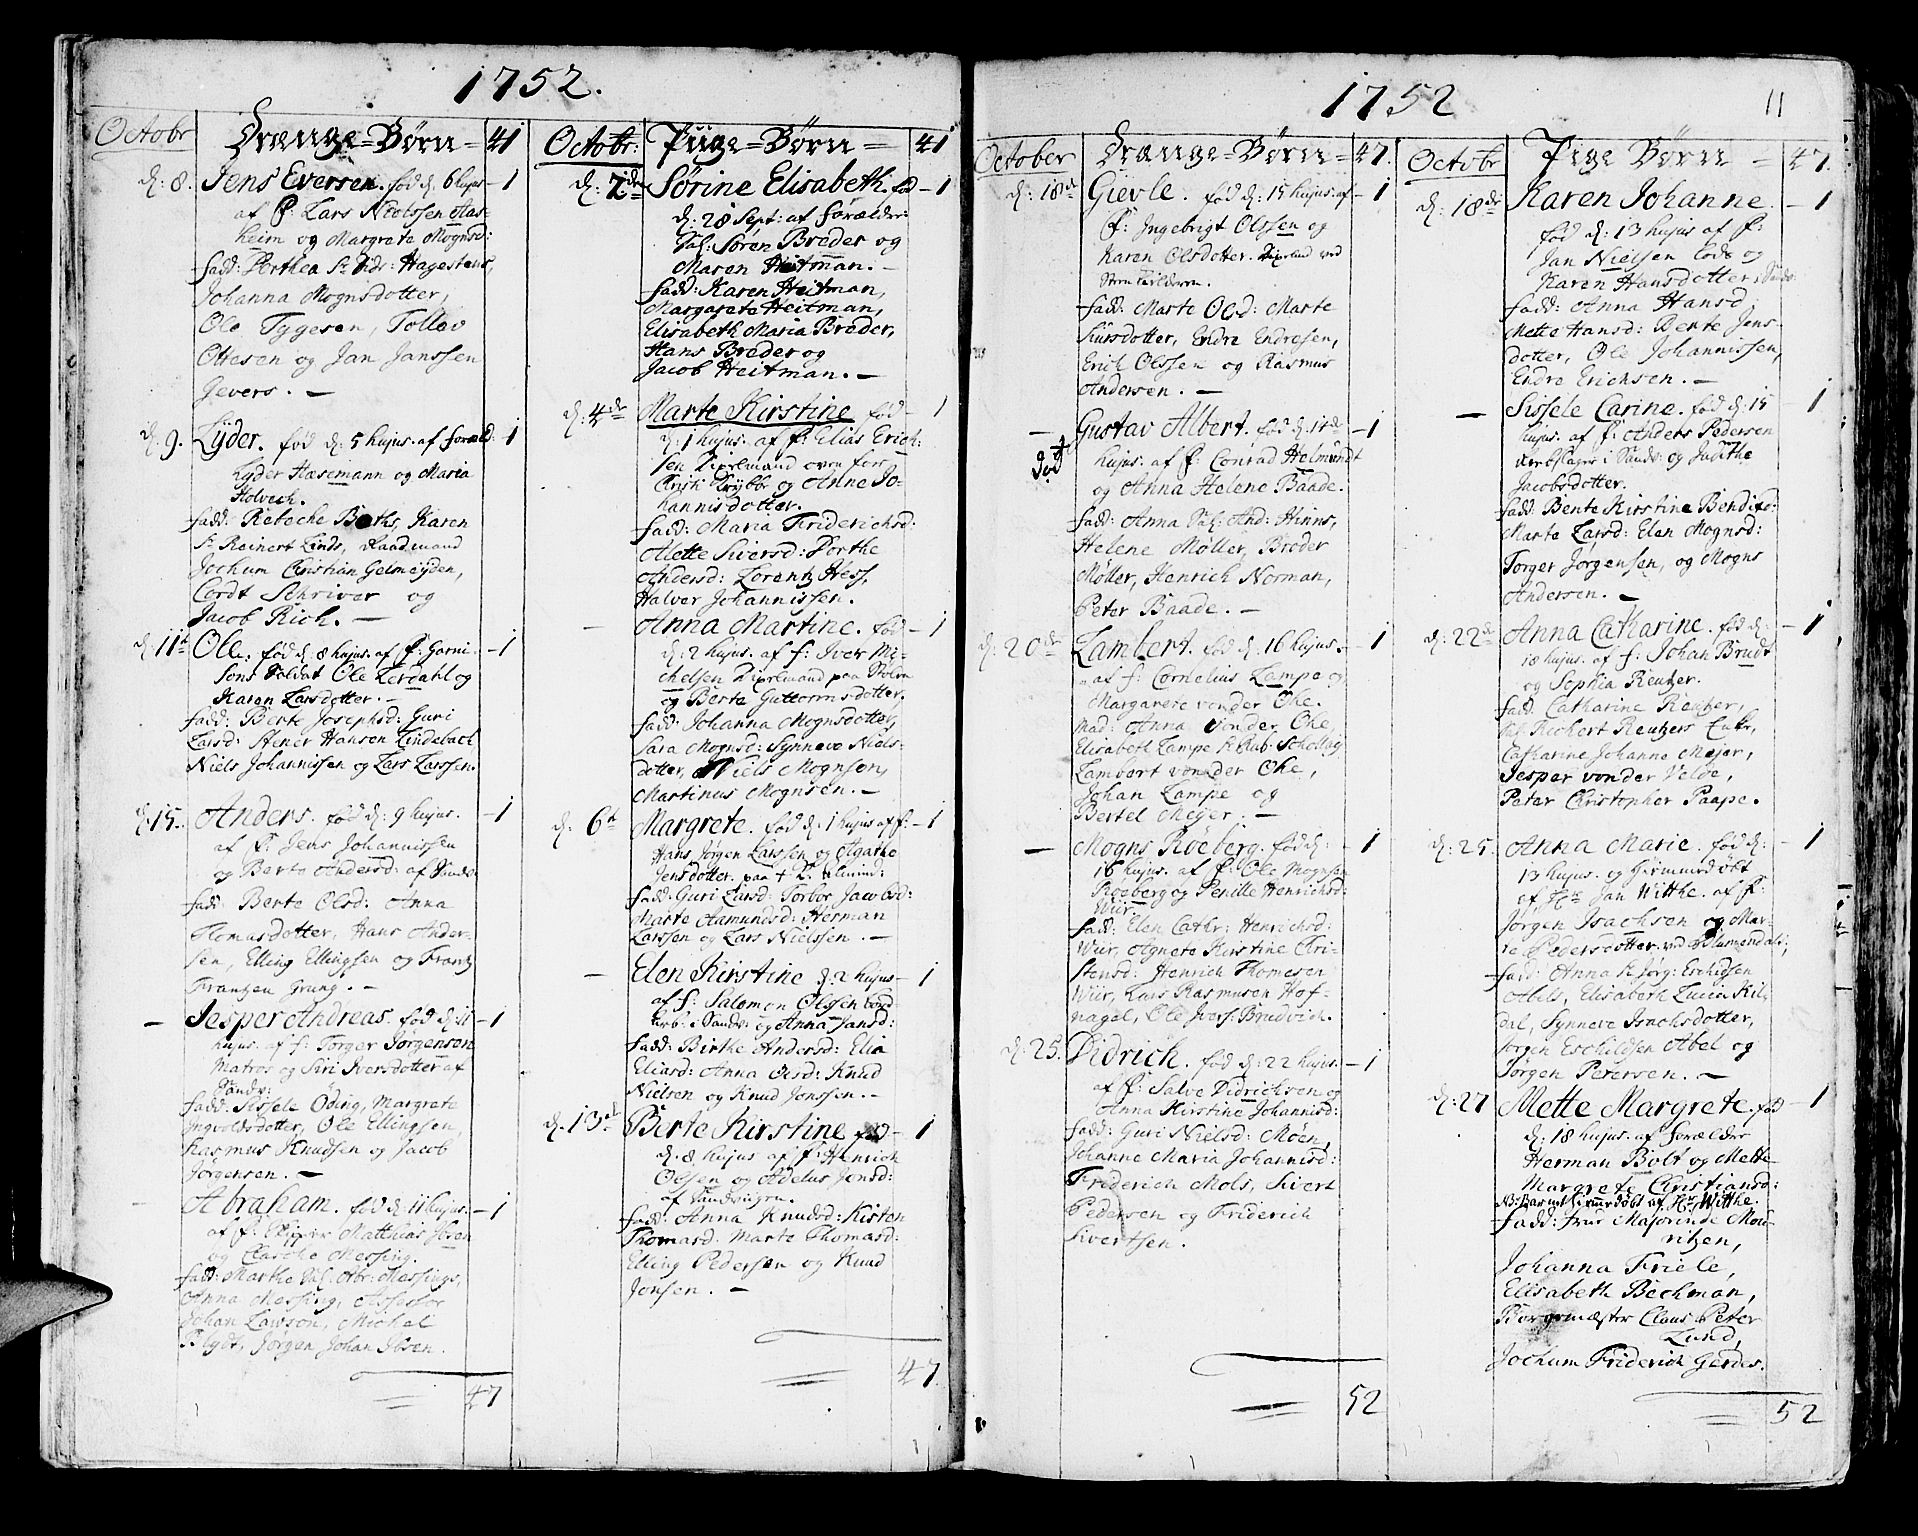 1752.
Octobr
Drænge=Børn = 41
d: 8. Jens Eversen. fød d: 6 hujus - 1
af f: Lars Neolssen Aas-
heim og Margrete Mognsd:
fadd: Dorthea Sr Hagestens,
Johanna Mognsdotter,
Ole Tygesen, Tollev
Ottesen og Jan Janssen
Gevers. —
d. 9. Lyder. fød d: 5 hujus. af foræld: - 1
Lyder Hasemann og Maria
Holveck.
fadd: Rebecke Boths, Karen
Sr Reinert Linds, Raadmand
Jochum Christian Gelmeyden,
Cordt Schriver og
Jacob Rich. —
d: 11t Ole. fød d: 8 hujus. af f: Garni - 1
sons Soldat Ole Lerdahl og
Karen Larsdotter. —
fadd: Berte Josephsd: Guri
Larsd: Stener Hansen Lindebach
Niels Johannissen og Lars Larssen.
d: 15. Anders. fød d: 9 hujus. - 1
af f: Jens Johannissen
og Berte Andersd: af Sandv:
fadd: Berte Olsd: Anna
Thomasdotter, Hans Ander-
sen, Elling Ellingsen og Frantz
Frantzen Grung. —
— Jesper Andreas. fød d: 11 - 1
hujus. af f: Torger Jørgensen
Matros og Siri Iversdotter af
Sandv:
fadd: Sissele Oding, Margrete
Ingvoldsdotter, Ole Ellingsen,
Rasmus Knudsen og Jacob
Jørgensen. —
— Abraham. fød d: 11 hujus. - 1
af f: Skipper Matthias
og Messing.
fadd: Marthe Sal: Abr: Messings,
Anna Messing, Assessor
Johan Lawson, Michel
Blydt, Jørgen Johan Ibsen.
47
Octobr:
Pige=Børn = 41
d: 7de Sørine Elisabeth. fød - 1
d: 28 Sept: af forælder:
Sal: Søren Breder og
Maren Heitman. —
fadd: Karen Heitman,
Margarete Heitman,
Elisabeth Maria Breder,
Hans Breder og
Jacob Heitman. —
d: 4de Marte Kirstine fød - 1
d: 1 hujus. af f: Elias Erich:
sen oven for
Christi Krybbe og Anne Jo-
hannisdotter.
fadd: Maria Friderichsd:
Alette Siversd: Dorthe
Andersd: Lorentz Hess,
Halver Johannissen.
— Anna Martine. fød - 1
d: 2 hujus. af f: Iver Mi-
chelsen paa
og Berte Guttormsdotter.
fadd: Johanna Mognsdotter,
Sara Mognsd: Synneve Niels-
dotter, Niels Mognsen,
Martinus Mognsen. —
d: 6t Margrete. fød d: 1 hujus af f: - 1
Hans Jørgen Larssen og Agathe
Jensdotter. paa
fadd: Guri Larsd: Torbor Jacobsd:
Marte Aamundsd: Herman
Larssen og Lars Nielssen. —
— Elen Kirstine d: 2 hujus - 1
af f: Salomon Olssen
i Sandv: og Anna Jansd:
fadd: Birthe Andersd: Elia
Eliasd: Anna Olsd: Knud
Nielsen og Knud Jonssen. —
d. 13de Berte Kirstine fød - 1
d. 8 hujus af f: Henrich
Olssen og Adelus Jonsd:
af Sandvigen.
fadd: Anna Knudsd: Kisten
Thomasd. Marte Thomasd:
Elling Pedersen og Knud
Jonsen. —
47.
1752
11
October
Drænge=Børn = 47.
d: 18d Gievle. fød d: 15 hujus. af - 1
f: Ingebrigt Olssen og
Karen Olsdotter. ved

fadd: Marte Oled: Marte
Siursdotter, Endre Endresen,
Erich Olssen og Rasmus
Andersen. —
— Gustav Albert. fød d. 14de - 1
hujus. af f: Conrad Helmundt
og Anna Helene Baade.
fadd: Anna Sal: And: Hinns,
Helene Møller, Broder
Møller, Henrich Norman,
Peter Baade. —
d: 20de Lambert. fød d: 16 hujus. - 1
af f: Cornelius Lampe og
Margarete vonder Ohe.
Mad: Anna vonder Ohe,
Elisabeth Lampe
Lambert vonder Ohe,
Johan Lampe og
Bertel Meyer. —
— Mogns Røeberg. fød d: - 1
16 hujus. af f: Ole Mognsen
Røeberg og Pernille Henrichsd:
Wiir.
fadd: Elen Cathr: Henrichsd:
Wiir, Agnete Kirstine Chri-
stensd: Henrich Thomesen
Wiir, Lars Rasmusen Hof-
nagel, Ole Ivers: Brudvich.
d: 25. Didrich. fød d: 22 hujus. - 1
af f: Salve Didrichsen og
Anna Kirstine Johannisd:
fadd: Guri Nielsd: Møen,
Johanne Maria Johannisd:
Friderich Mols, Sivert
Pedersen og Friderich
Sivertsen.
52
Octobr
Pige Børn = 47.
d: 18de Karen Johanne. - 1
fød d: 13 hujus af f:
Jan Nielsen Lods og
Karen Hansdotter, i Sandv:
fadd: Anna Hansd:
Mette Hansd: Berte Jens-
dotter, Ole Johannissen,
Endre Erichsen. —
— Sissele Carine. fød d: 15 - 1
hujus. af f: Anders Pedersen
i Sandv: og Judithe
Jacobsdotter.
fadd: Bente Kirstine
Marte Larsd: Elen Mognsd:
Torger Jørgensen, og Mogns
Andersen. —
d: 22de Anna Catharine. fød d: - 1
18 hujus. af f: Johan Brudt
og Sophia Reutzer.
fadd: Catharine Reutzer,
Sal: Richert Reutzers Enke,
Catharine Johanne Mejer,
Jesper vonder Velde,
Peter Christopher Paape.
d. 25. Anna Marie. fød d: - 1
13 hujus. og hiemmedøbt
af Hr Jan Witthe. af f:
Jørgen Isachsen og Mar-
te Pedersdotter. ved Blumendals;
fadd: Anna Sr Jørg: Eschildsen
Abels, Elisabeth Lucia Kil,
dal, Synneve Isachsdotter,
Jørgen Eschildsen Abel og
Jørgen Petersen. —
d: 27 Mette Margrete. fød - 1
d: 18 hujus. af forælder
Herman Bolt og Mette
Margrete Christiansd:
NB: Barnet hiemmedøbt af Hr Witthe.
fadd: Frue Majorinde Mou-
ritzen,
Johanna Friele,
Elisabeth Beckman,
Borgemæster Claus Peter
Lund,
Jochum Friderich Gerdes.
52